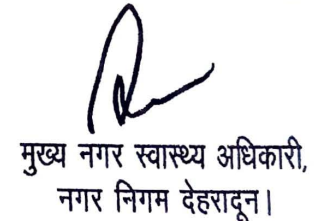 मुख्य नगर स्वास्थ्य अधिकारी,
नगर निगम देहरादून।